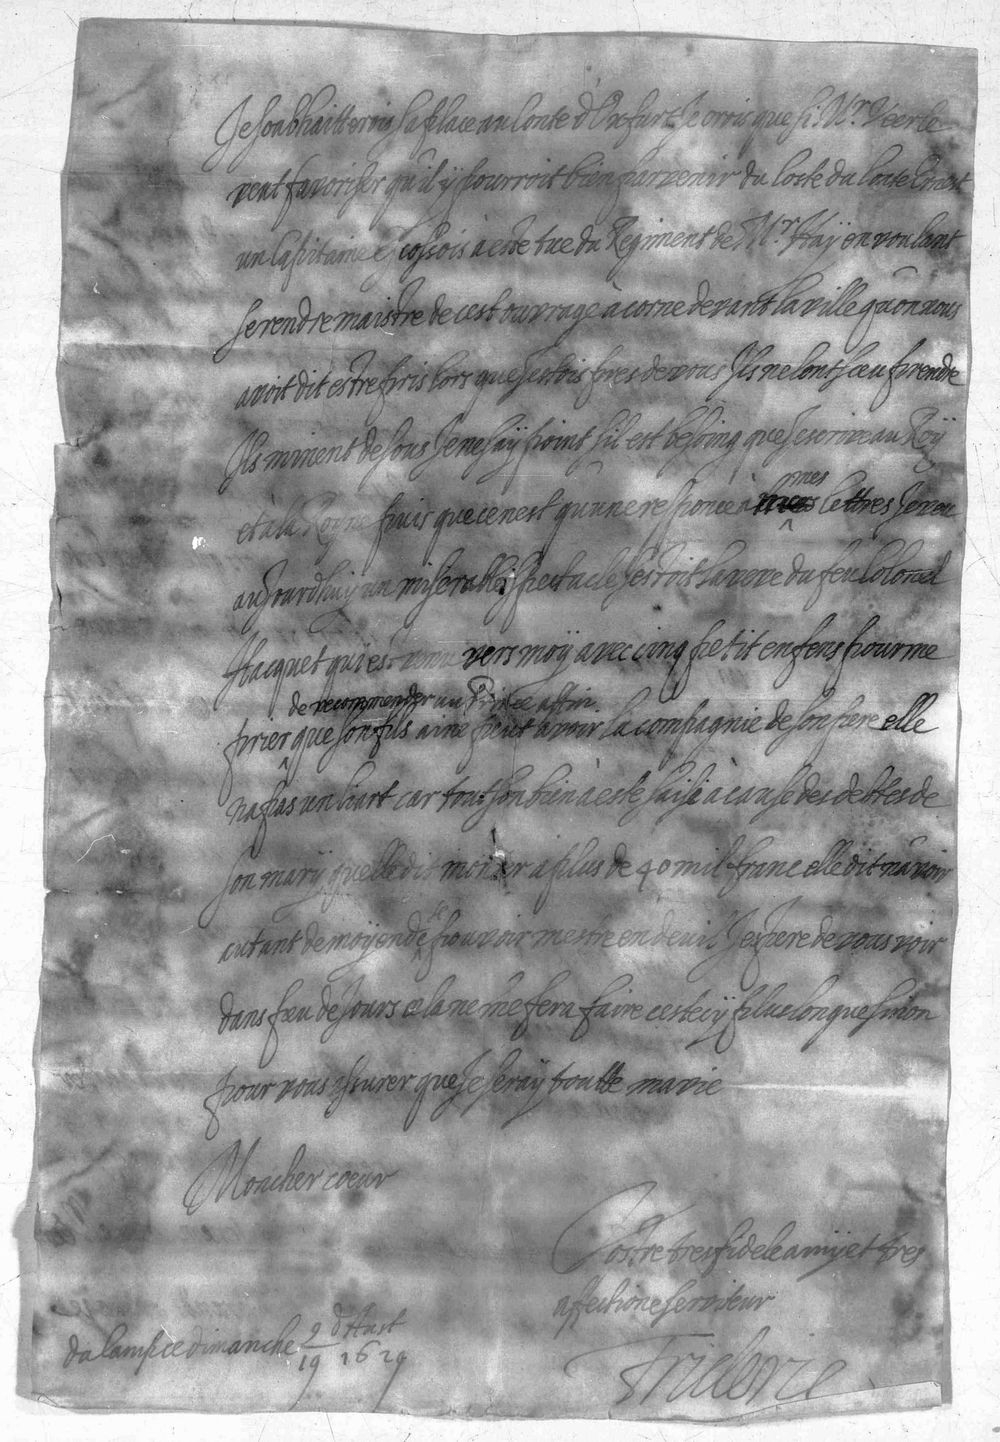 Je soubhaitterois sa place au Conte d'Oxfurt Je crois que si Mr. Veer le
veut favoriser qu'il y pourroit bien parvenir du Coste du Conte Ernest
un Capitaine Escossois a este tue du Regiment de Mr. Haÿ en voulant
se rendre maistre de cest ouvrage à corne devant la ville qu'on nous
avoit dit estre pris lors que j'estois pres de vous Ils ne l'ont sceu prendre
Ils minent desous Je ne saÿ point s'il est besoing que Jescrive au Roÿ
et a la Royne puis que ce nest qu'une responce à mes lettres Jeveu
aujourdhuÿ un miserable spectacle s'estoit la veve du feu Colonel
Hacquet qui est venu vers moÿ avec cinq petit enfens pour me
de recommender au Prince affin
prier que son fils ainé peut avoir la compagnie de son pere elle
na pas un liart car tout son bien à este saisi à cause des debtes de
son marÿ quelle dit monter a plus de 40 mil franc elle dit n'avoir
autant de moÿen de se pouvoir mestre en deuil Jespere de vous voir
dans peu de Jours cela ne me fera faire cestecÿ plus longue sinon
pour vous assurer que Je seraÿ toutte ma vie
Mon cher coeur
Vostre tresfidele amÿ et tres
affectioné serviteur
Frideric
du Camp ce dimanche 9/19 d'Aust 1629